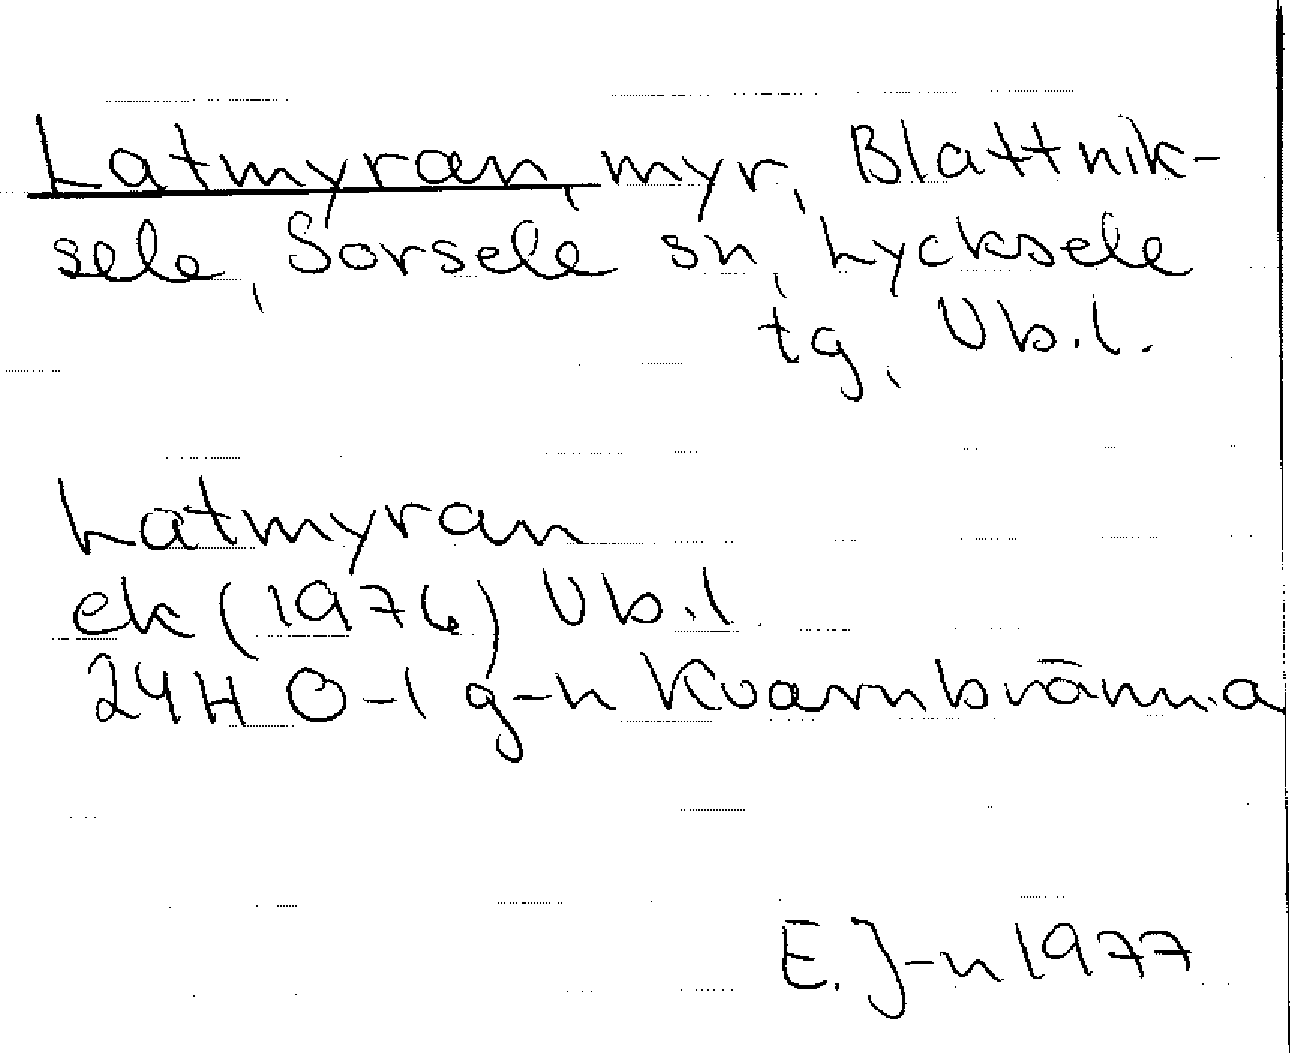 Latmyran, myr, Blattnik-
sele, Sorsele sn, Lycksele
tg, Vb.l.
Latmyran
ek (1976) Vb.l
24H 0-1 g-h Kvarnbränna
E. J-n 1977